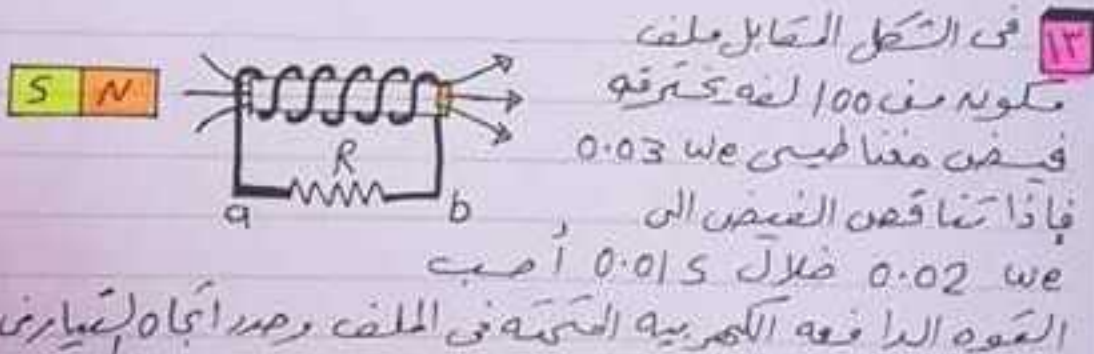 ١٣ فى الشكل المقابل ملف
مكون من 100 لفه يخترقه
فيض مغناطيسى 0.03 we
فإذا تناقص الفيض الى
0.02 we خلال 0.01 s أحسب
القوه الدافعه الكهربيه المستحثه فى الملف وحدد اتجاه التيار فى
S N
R
a b